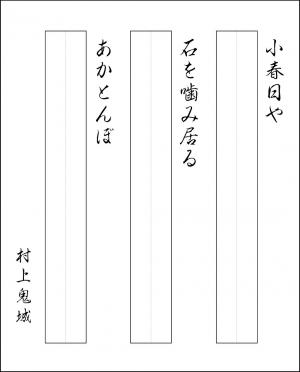 小春日や
石を噛み居る
あかとんぼ
村上鬼城